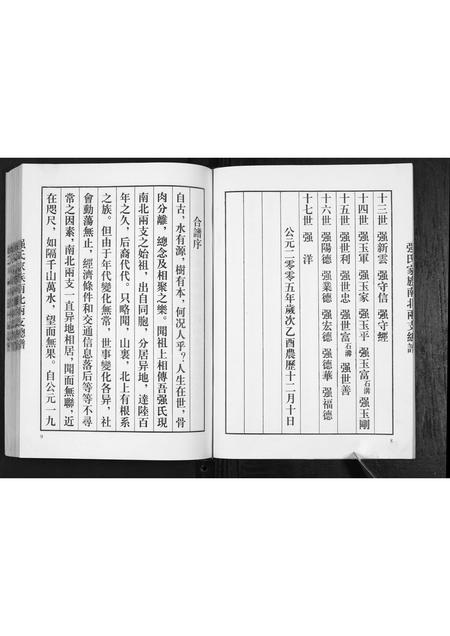 强氏家族南北兩支總譜
十三世 强新雲 强守信 强守經
十四世 强玉軍 强玉家 强玉平 强玉富石溝 强玉剛
十五世 强世利 强世忠 强世富石溝 强世善
十六世 强陽德 强業德 强宏德 强德華 强福德
十七世 强 洋
公元二零零五年歲次乙酉農歷十二月十日
8
合譜序
自古，水有源，樹有本，何況人乎？人生在世，骨
肉分離，總念及相聚之樂。聞祖上相傳吾强氏現
南北兩支之始祖，出自同胞，分居异地，達陸百
年之久，后裔代代。只略聞，山裏，北上有根系
之族。但由于年代變化無常，世事變化各异，社
會動蕩無止，經濟條件和交通信息落后等等不尋
常之因素，南北兩支一直异地相居，聞而無聯，近
在咫尺，如隔千山萬水，望而無果。自公元一九
强氏家族南北兩支總譜
9